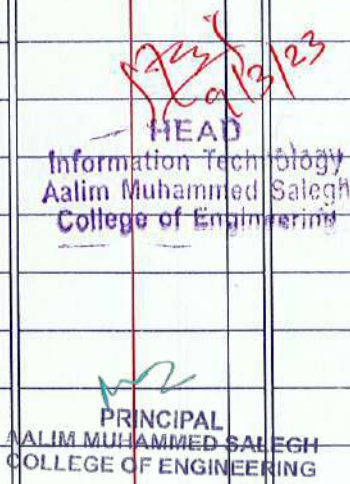 9/3/23
HEAD
Information Technology
Aalim Muhammed Salegh
College of Engineering
PRINCIPAL
AALIM MUHAMMED SALEGH
COLLEGE OF ENGINEERING